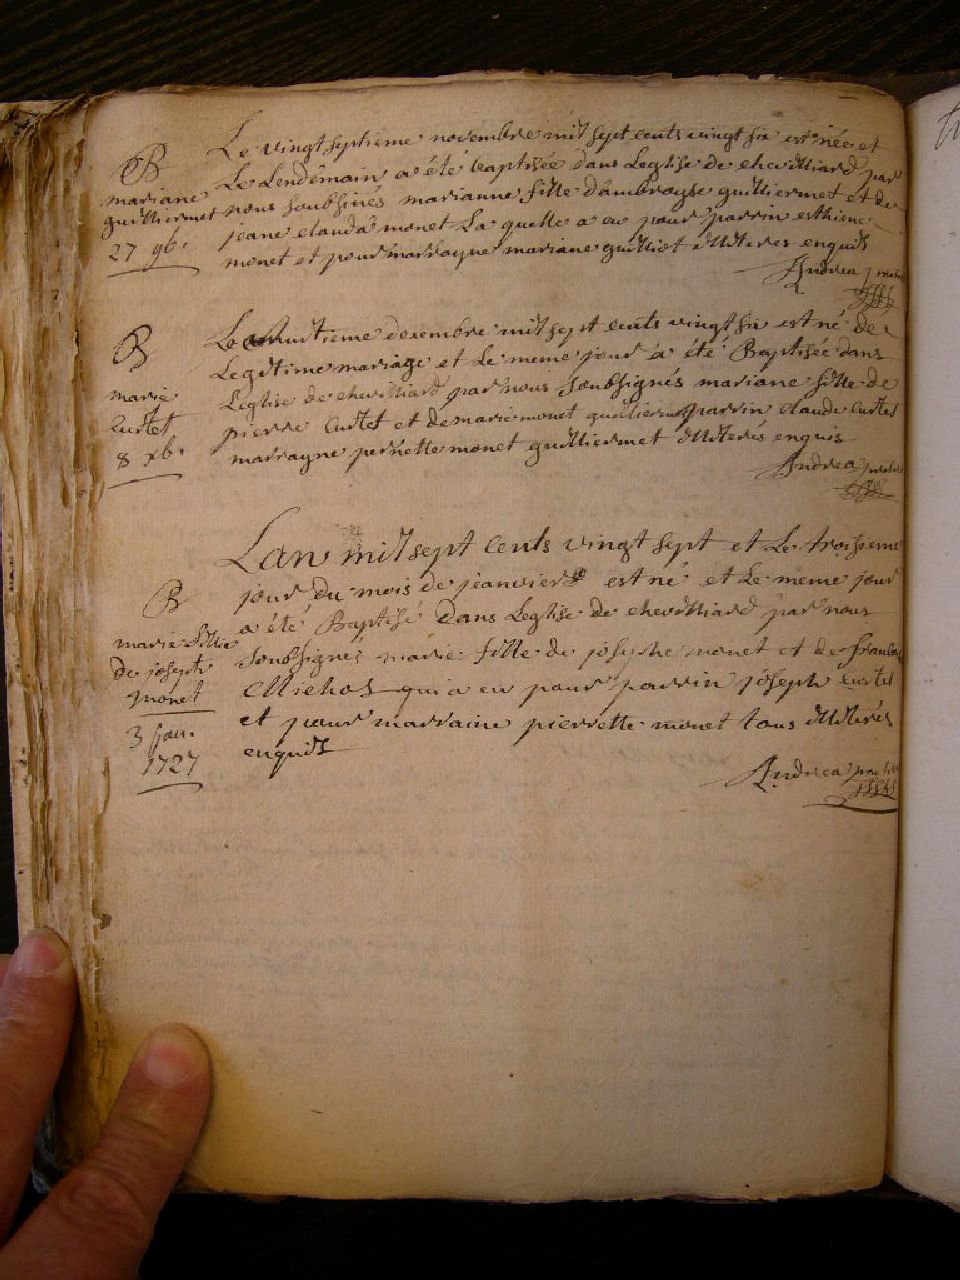 B
mariane
guilliermet
27 9b.
Le vingt septieme novembre mil sept cents vingt six est née et
Le Lendemain a été baptisée dans Leglise de chevilliard par
nous soubsinés marianne fille d'ambroyse guilliermet et de
jeane clauda monet La quelle a eu pour parrin esthiene
monet et pour marrayne mariane guilliot illiteres enquis
Andrea
B
marie
Curtet
8 xb.
Le huitieme decembre mil sept cents vingt six est né de
Legitime mariage et Le meme jour a été Baptisée dans
Leglise de chevilliard par nous soubsignés mariane fille de
pierre Curtet et de marie monet parrin Claude Curtet
marrayne pernette monet guilliermet illiterés enquis
Andrea
B
marie fille
de joseph
monet
3 janv.
1727
Lan mil sept cents vingt sept et Le troisieme
jour du mois de jeanvier est né et Le meme jour
a été Baptisé dans Leglise de chevilliard par nous
soubsignés marie fille de josephe monet et de
qui a eu pour parrin joseph Curtet
et pour marraine pierrette monet tous illiterés
enquis
Andrea